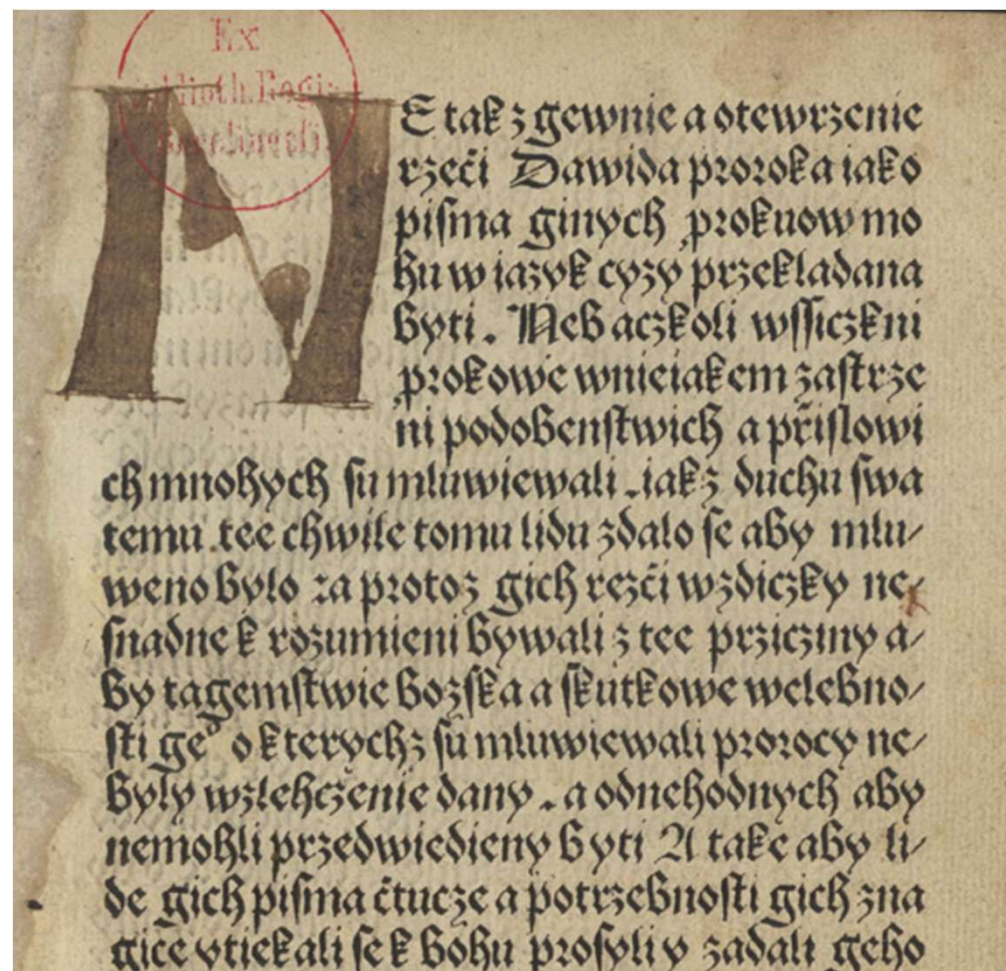 Ex
NE tak zgewnie a otewrzenie
rzeči Dawida proroka iako
pisma ginych prokuow mo
hu w iazyk cyzy przekladana
byti. Neb aczkoli wssiczkni
prokowe wnieiakem zastrze
ni podobenstwich a přislowi
ch mnohych su mluwiewali. iakz duchu swa
temu. tee chwile tomu lidu zdalo se aby mlu/
weno bylo za protoz gich rezči wzdiczky ne/
snadne k rozumieni bywali z tee przicziny a/
by tagemstwie bozska a skutkowe welebno/
sti geº o kterychz sú mluwiewali prorocy ne/
byly wzlehczenie dany. a odnehodnych aby
nemohli przedwiedieny byti A take aby li/
de gich pisma čtucze a potrzebnosti gich zna
gice vtiekali se k bohu prosyli y zadali geho